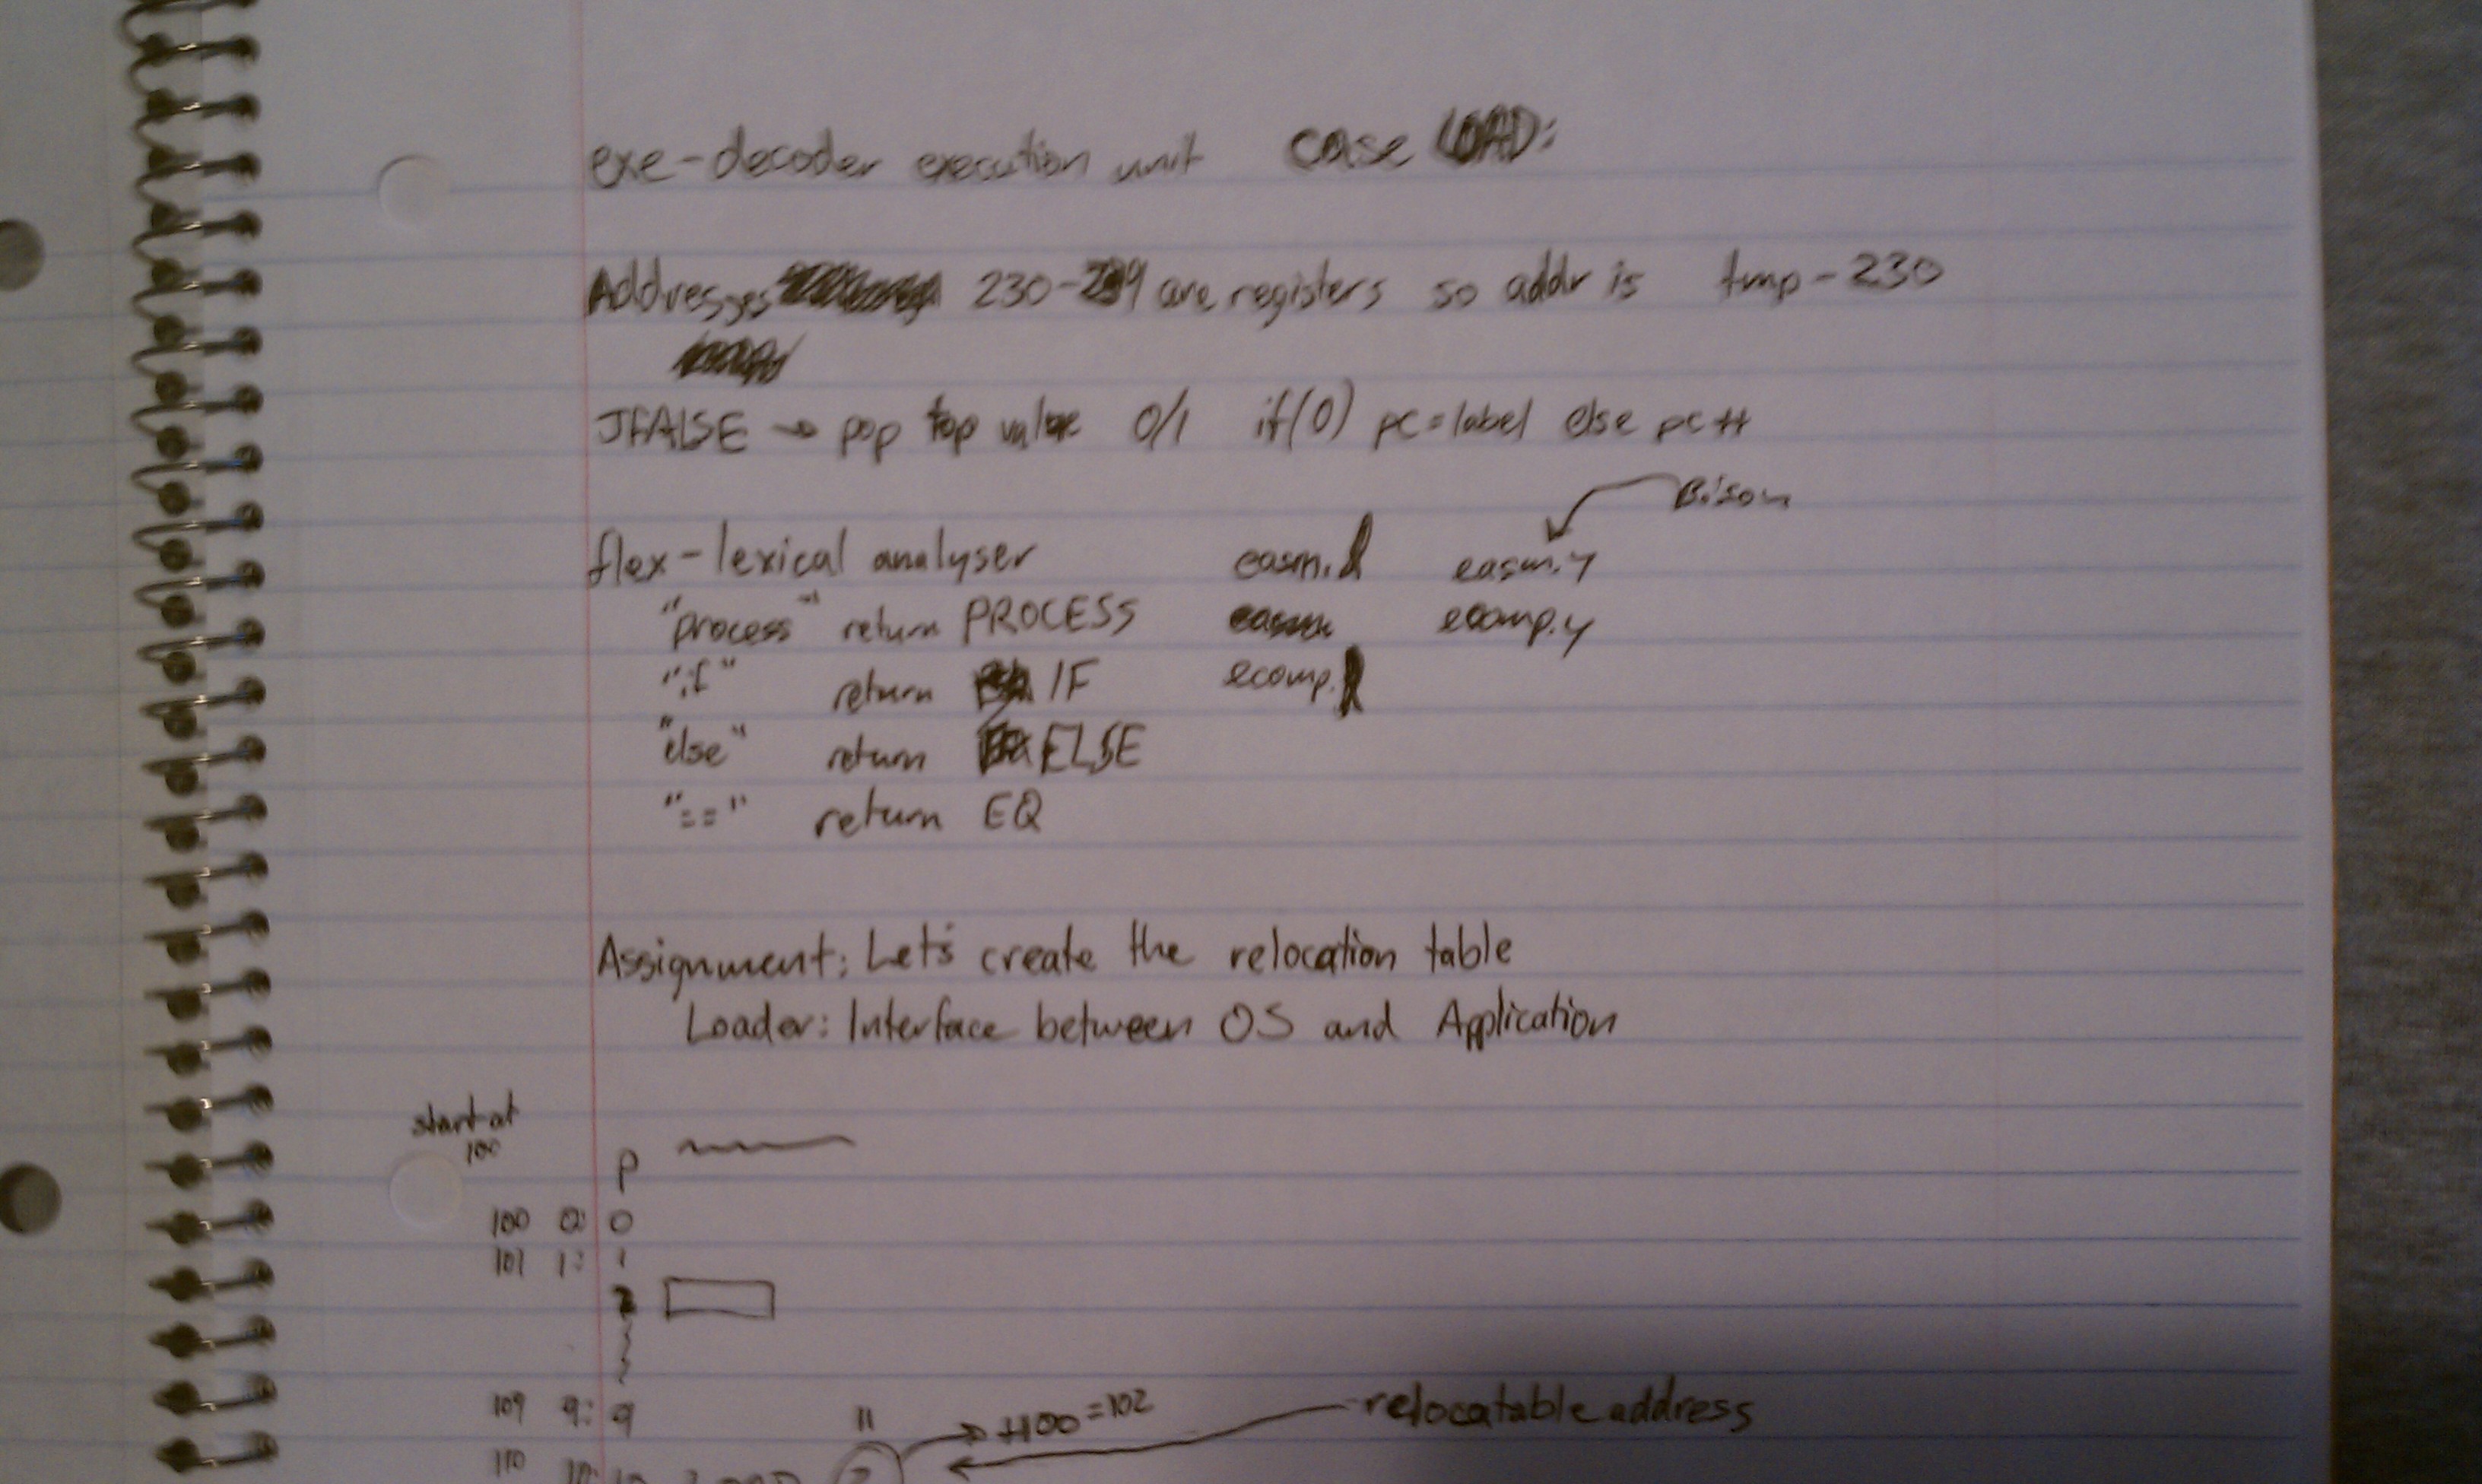 exe-decoder execution unit case LOAD:
Addresses 230-239 are registers so addr is tmp-230
JFALSE → pop top value 0/1 if(0) pc=label else pc++
Bison
flex-lexical analyser easm.l easm.y
"process" return PROCESS ecomp.y
"if" return IF ecomp.l
"else" return ELSE
"==" return EQ
Assignment: Let's create the relocation table
Loader: Interface between OS and Application
start at
100
P
100 0: 0
101 1: 1
2
109 9: 9 11 +100=102 relocatable address
110 10: 10 LOAD 2